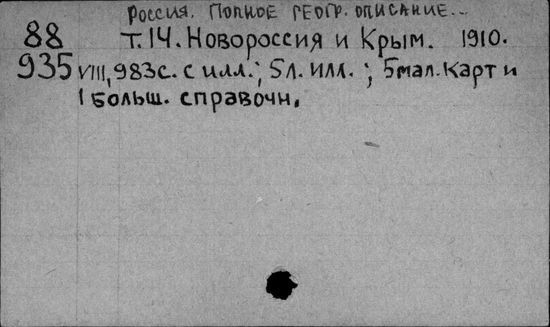 Россия. Полное геогр. описание...
88 Т.14. Новороссия и Крым. 1910.
935 VIII, 983с. с илл.; 5л. илл. ; 5мал. карт и
1 больш. справочн.